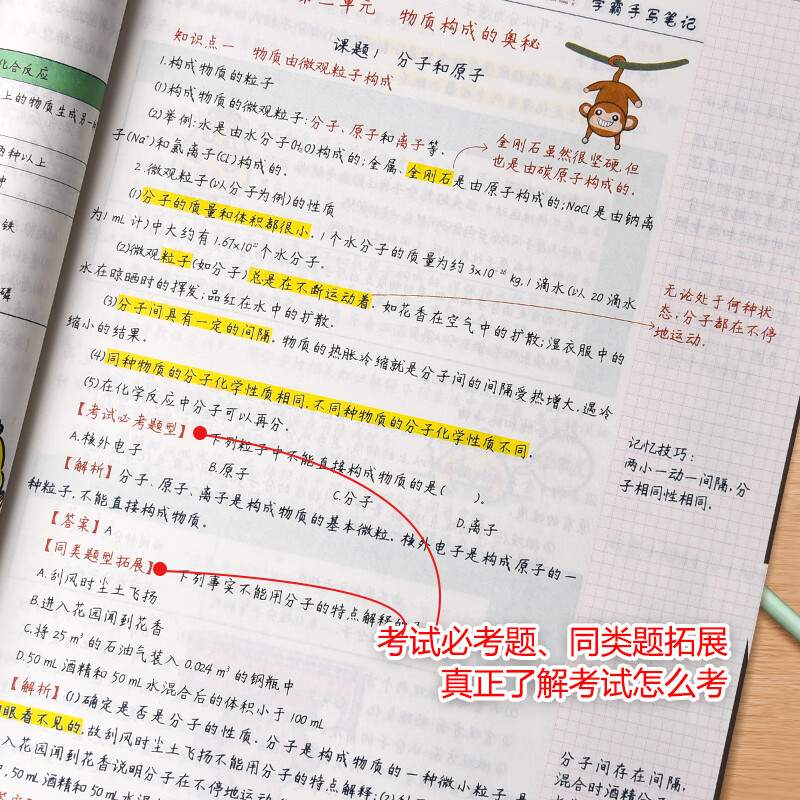 学霸手写笔记
第二单元 物质构成的奥秘
课题1 分子和原子
知识点一 物质由微观粒子构成
1.构成物质的粒子
(1)构成物质的微观粒子:分子、原子和离子等.
(2)举例:水是由水分子(H₂O)构成的;金属、金刚石是由原子构成的;NaCl是由钠离
子(Na⁺)和氯离子(Cl⁻)构成的.
金刚石虽然很坚硬,但
也是由碳原子构成的.
2.微观粒子(以分子为例)的性质
(1)分子的质量和体积都很小.1个水分子的质量约为3×10⁻²⁶kg,1滴水(以20滴水
为1mL计)中大约有1.67×10²¹个水分子.
(2)微观粒子(如分子)总是在不断运动着.如花香在空气中的扩散;湿衣服中的
水在晾晒时的挥发;品红在水中的扩散.
无论处于何种状
态,分子都在不停
地运动.
(3)分子间具有一定的间隔.物质的热胀冷缩就是分子间的间隔受热增大,遇冷
缩小的结果.
(4)同种物质的分子化学性质相同,不同种物质的分子化学性质不同.
(5)在化学反应中分子可以再分.
记忆技巧:
两小一动一间隔,分
子相同性相同.
【考试必考题型】 下列粒子中不能直接构成物质的是( ).
A.核外电子 B.原子 C.分子 D.离子
【解析】分子、原子、离子是构成物质的基本微粒,核外电子是构成原子的一
种粒子,不能直接构成物质.
【答案】A
【同类题型拓展】 下列事实不能用分子的特点解释的
A.刮风时尘土飞扬
B.进入花园闻到花香
C.将25m³的石油气装入0.024m³的钢瓶中
D.50mL酒精和50mL水混合后的体积小于100mL
【解析】(1)确定是否是分子的性质.分子是构成物质的一种微小粒子,是
眼看不见的,故刮风时尘土飞扬不能用分子的特点解释;(2)
入花园闻到花香说明分子在不停地运动
,50mL酒精和50mL水
分子间存在间隔,
混合时酒精分
考试必考题、同类题拓展
真正了解考试怎么考
化合反应
上的物质生成另一
两种以上
种
铁
磷